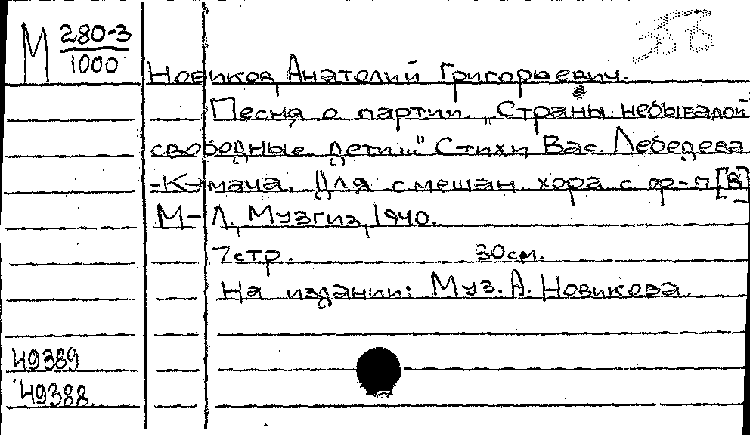 М 280-3
1000
Новиков, Анатолий Григорьевич.
Песня о партии. „Страны небывалой
свободные дети..." Стихи Вас. Лебедева
-Кумача. Для смешан. хора с ф-п [В]
М-Л, Музгиз, 1940.
7стр. 30см.
На издании: Муз. А. Новикова.
49389
49388.